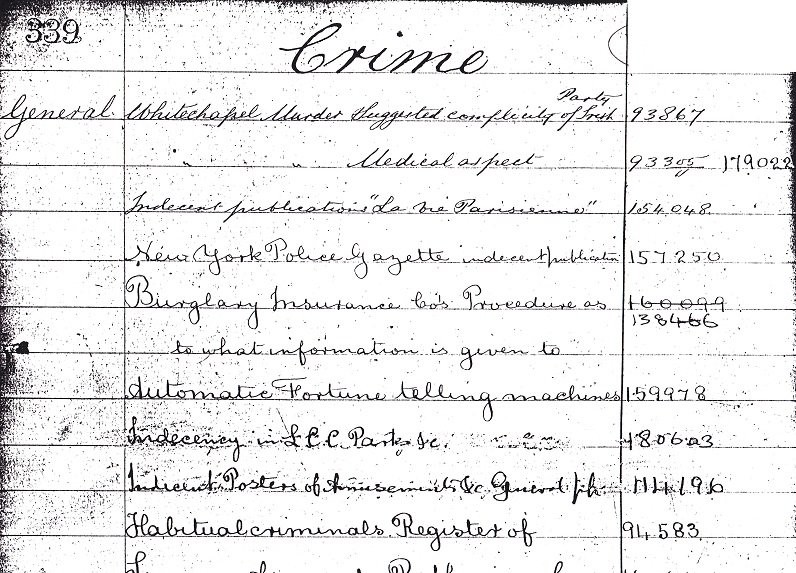 339
Crime
General Whitechapel Murder Suggested complicity of Irish Party 93867
" " Medical aspect 93305 179022
Indecent publications "La Vie Parisienne" 154048
New York Police Gazette indecent publication 157250
Burglary Insurance Co's Procedure as 160099
138466
to what information is given to
Automatic Fortune telling machines 159978
Indecency in L.C.C. Parks &c. 180603
Indecent Posters of Amusements &c General 114196
Habitual criminals. Register of 94583